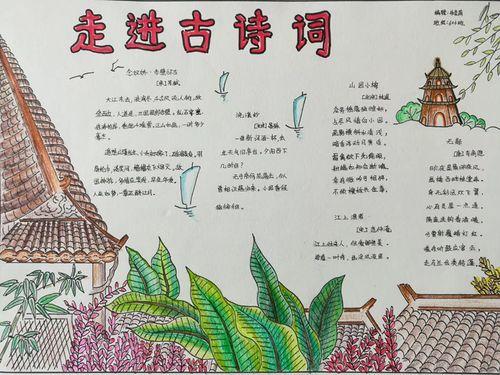 走进古诗词
念奴娇·赤壁怀古
[宋]苏轼
大江东去，浪淘尽，千古风流人物。故
垒西边，人道是，三国周郎赤壁。乱石穿空，
惊涛拍岸，卷起千堆雪。江山如画，一时多少
豪杰。
遥想公瑾当年，小乔初嫁了，雄姿英发。羽
扇纶巾，谈笑间，樯橹灰飞烟灭。故
国神游，多情应笑我，早生华发。
人生如梦，一尊还酹江月。
浣溪沙
[宋]晏殊
一曲新词酒一杯，去
年天气旧亭台。夕阳西下
几时回？
无可奈何花落去，似
曾相识燕归来。小园香径
独徘徊。
山园小梅
[北宋]林逋
众芳摇落独暄妍，
占尽风情向小园。
疏影横斜水清浅，
暗香浮动月黄昏。
霜禽欲下先偷眼，
粉蝶如知合断魂。
幸有微吟可相狎，
不须檀板共金尊。
江上渔者
[宋]范仲淹
江上往来人，但爱鲈鱼美。
君看一叶舟，出没风波里。
编辑：
班级：
无题
[唐]李商隐
昨夜星辰昨夜风，
画楼西畔桂堂东。
身无彩凤双飞翼，
心有灵犀一点通。
隔座送钩春酒暖，
分曹射覆蜡灯红。
嗟余听鼓应官去，
走马兰台类转蓬。